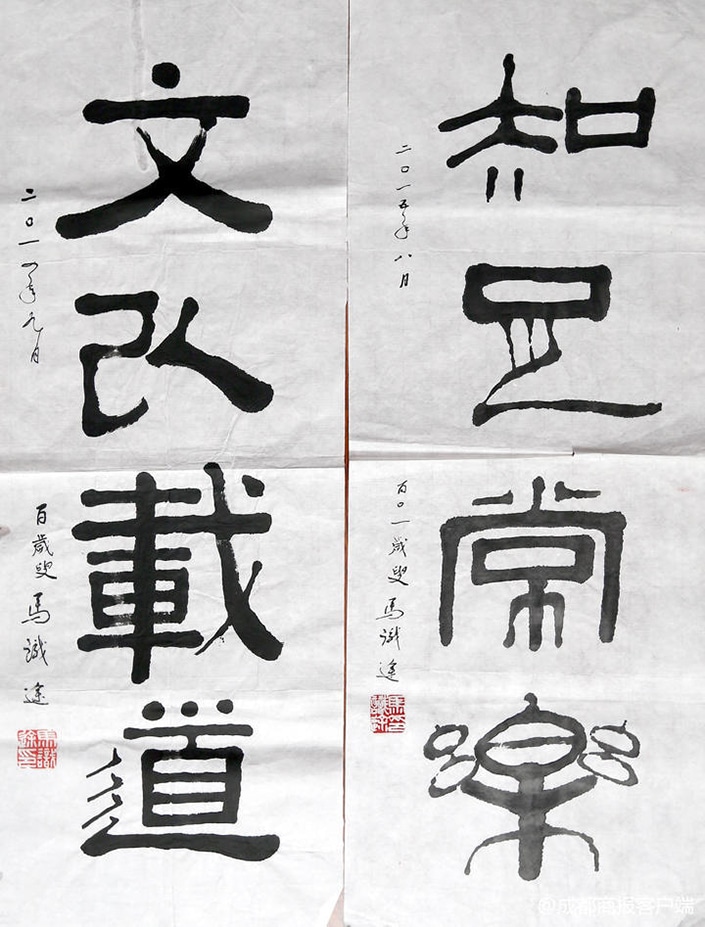 知足常樂
二〇一五年八月
百〇一歲叟馬識途
文以載道
二〇一四年九月
百歲叟馬識途
馬識途印
@成都商报客户端